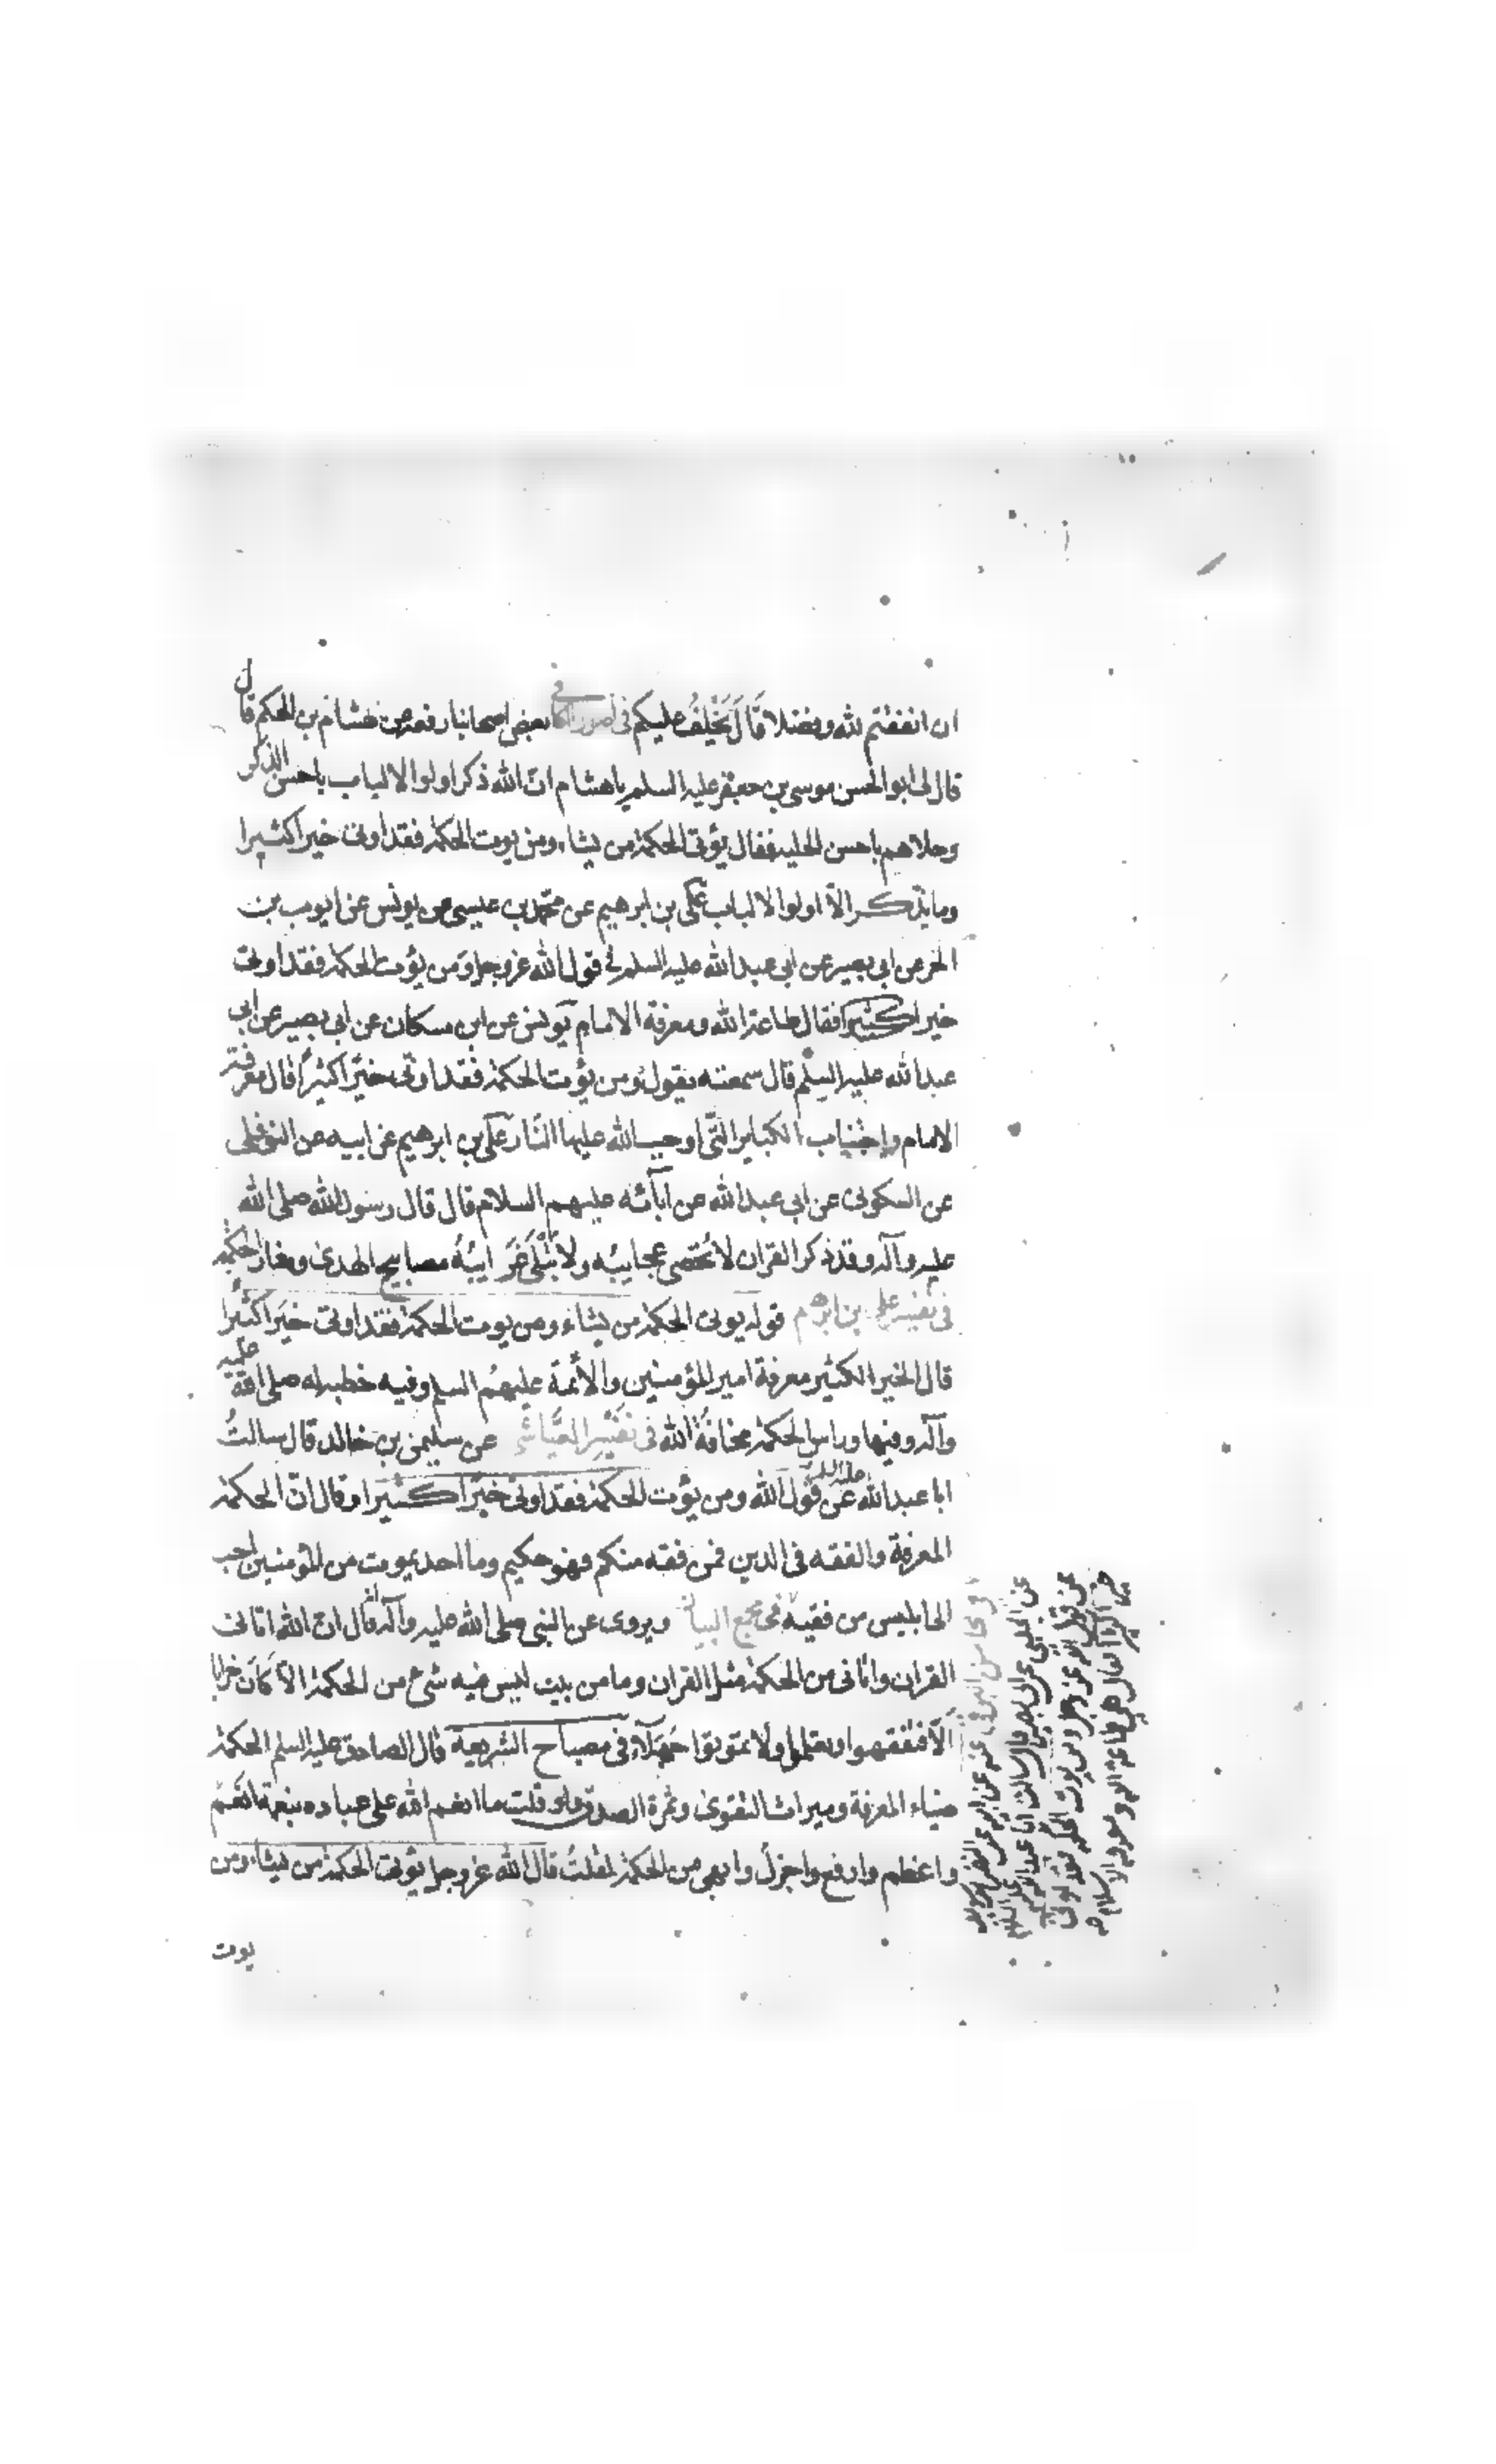 ان انفقتم لله وفضلا قال يخلف عليكم فى اصول الكافى بعض اصحابنا رفعه عن هشام بن الحكم قال
قال لى ابو الحسن موسى بن جعفر عليه السلم يا هشام ان الله ذكر اولوا الالباب باحسن الذكر
وحلاهم باحسن الحليه فقال يؤتى الحكمة من يشاء ومن يوت الحكمة فقد اوتى خيرا كثيرا
وما يذكر الا اولوا الالباب على بن ابرهيم عن محمد بن عيسى عن يونس عن ايوب بن
الحر عن ابى بصير عن ابى عبد الله عليه السلم فى قول الله عز وجل ومن يؤت الحكمة فقد اوتى
خيرا كثيرا فقال طاعة الله ومعرفة الامام يونس عن ابن مسكان عن ابى بصير عن ابى
عبد الله عليه السلم قال سمعته يقول ومن يؤت الحكمة فقد اوتى خيرا كثيرا قال معرفة
الامام واجتناب الكبائر التى اوجب الله عليها النار على بن ابرهيم عن ابيه عن النوفلى
عن السكونى عن ابى عبد الله عن آبائه عليهم السلام قال قال رسول الله صلى الله
عليه وآله وقد ذكر القران لا تحصى عجايبه ولا تبلى غرايبه مصابيح الهدى ومنار الحكمة
فى تفسير على بن ابرهيم قوله يوتى الحكمة من يشاء ومن يوت الحكمة فقد اوتى خيرا كثيرا
قال الخير الكثير معرفة امير المؤمنين والأئمة عليهم السلم وفيه خطبة له صلى الله عليه
وآله وفيها وراس الحكمة مخافة الله فى تفسير العياشى عن سليمن بن خالد قال سالت
ابا عبد الله عليه السلم عن قول الله ومن يؤت الحكمة فقد اوتى خيرا كثيرا وقال ان الحكمة
المعرفة والفقه فى الدين فمن فقه منكم فهو حكيم وما احد يموت من المؤمنين احب
الى ابليس من فقيه فى مجمع البيان ويروى عن النبى صلى الله عليه وآله انه قال ان الله اتانى
القران واتانى من الحكمة مثل القران وما من بيت ليس فيه شئ من الحكمة الا كان خرابا
ألا فتفقهوا وتعلموا ولا تموتوا جهلاء فى مصباح الشريعة قال الصادق عليه السلم الحكمة
ضياء المعرفة وميراث التقوى وثمرة الصدق ولو قلت ما انعم الله على عباده بنعمة انعم
واعظم وارفع واجزل وابهى من الحكمة لقلت قال الله عز وجل يؤتى الحكمة من يشاء ومن
يوت
فى محاسن البرقى عنه عن ابيه عن النضر بن سويد
عن الحلبى عن ابى بصير قال سالت ابا عبد الله عليه السلم
عن قول الله عز وجل ومن يوت الحكمة فقد اوتى
خيرا كثيرا فقال هى طاعة الله ومعرفة الاسلام